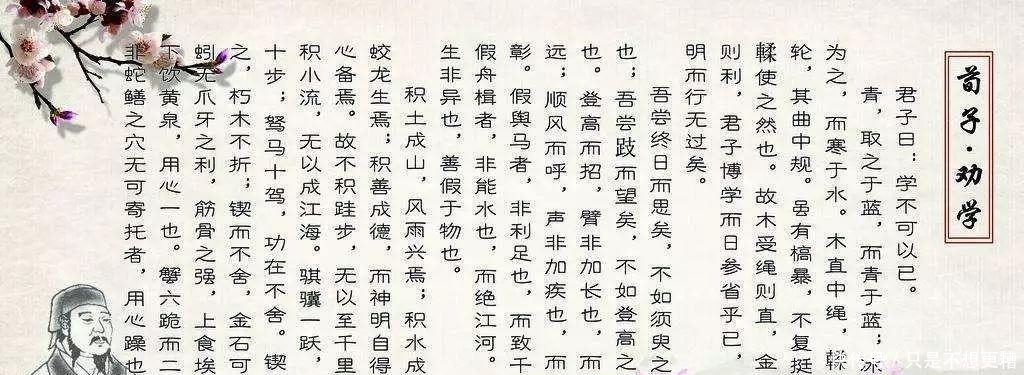 荀子·劝学
君子曰：学不可以已。
青，取之于蓝，而青于蓝；冰
为之，而寒于水。木直中绳，輮
轮，其曲中规。虽有槁暴，不复挺
輮使之然也。故木受绳则直，金
则利，君子博学而日参省乎已，
明而行无过矣。
吾尝终日而思矣，不如须臾之
也；吾尝跂而望矣，不如登高之
也。登高而招，臂非加长也，而
远；顺风而呼，声非加疾也，而
彰。假舆马者，非利足也，而致千
假舟楫者，非能水也，而绝江河。
生非异也，善假于物也。
积土成山，风雨兴焉；积水成
蛟龙生焉；积善成德，而神明自得
心备焉。故不积跬步，无以至千里
积小流，无以成江海。骐骥一跃，
十步；驽马十驾，功在不舍。锲
之，朽木不折；锲而不舍，金石可
蚓无爪牙之利，筋骨之强，上食埃
下饮黄泉，用心一也。蟹六跪而二
非蛇鳝之穴无可寄托者，用心躁也
只是不想更糟